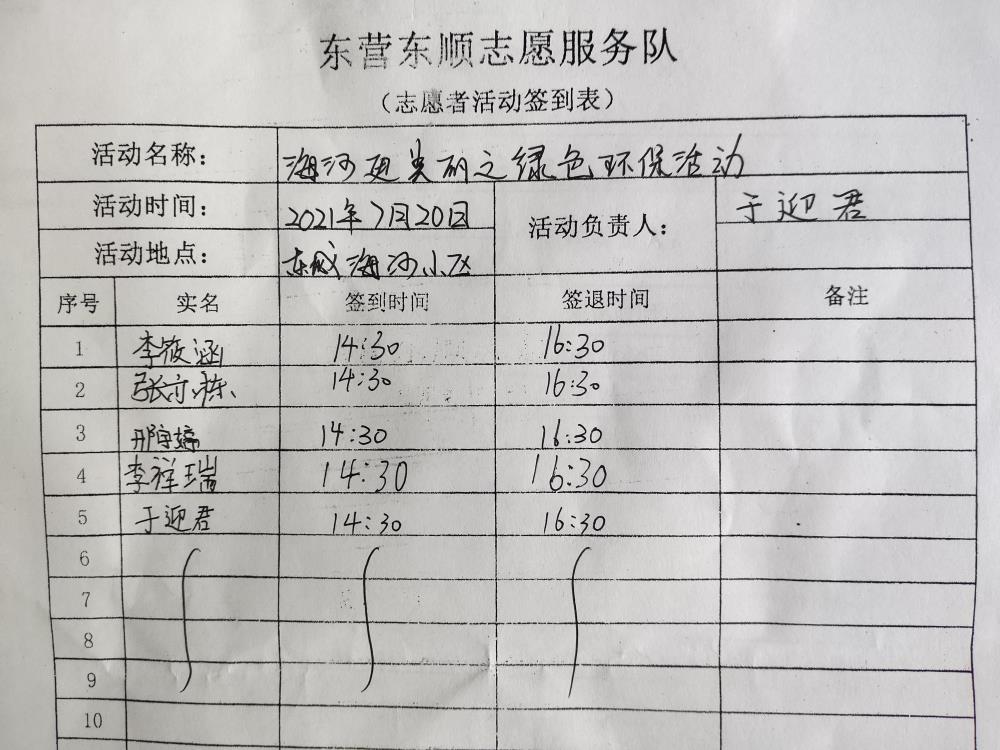 东营东顺志愿服务队
（志愿者活动签到表）
活动名称： 海河更美丽之绿色环保活动
活动时间： 2021年7月20日 活动负责人： 于迎君
活动地点： 东城海河小区
序号 实名 签到时间 签退时间 备注
1 李筱涵 14:30 16:30
2 张亦栋 14:30 16:30
3 14:30 16:30
4 李祥瑞 14:30 16:30
5 于迎君 14:30 16:30
6
7
8
9
10